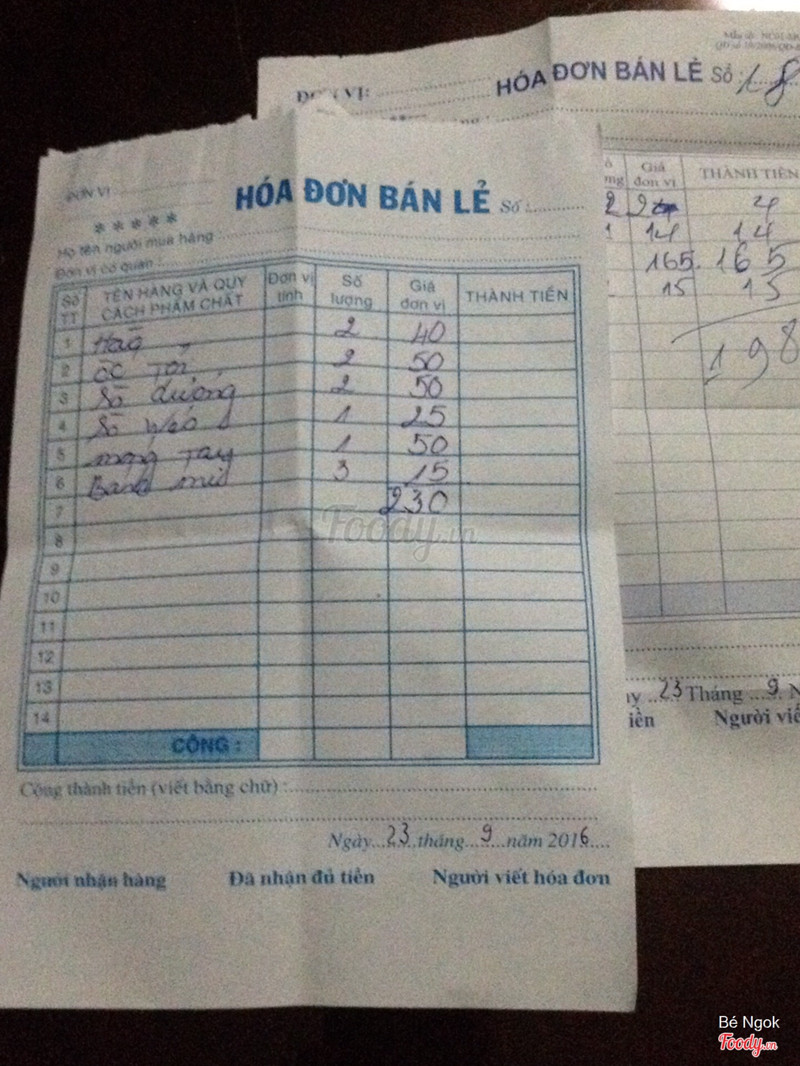 HÓA ĐƠN BÁN LẺ Số: 18
ĐƠN VỊ:
Giá đơn vị THÀNH TIỀN
2 2 4
1 14 14
165. 165
15 15
198
23 Tháng 9
Người viế
ĐƠN VỊ
HÓA ĐƠN BÁN LẺ Số:
*****
Họ tên người mua hàng
Đơn vị cơ quan
Số TT TÊN HÀNG VÀ QUY CÁCH PHẨM CHẤT Đơn vị tính Số lượng Giá đơn vị THÀNH TIỀN
1 Hàu 2 40
2 ốc Tỏi 2 50
3 Sò dương 2 50
4 Sò 1 25
5 móng Tay 1 50
6 Bánh mì 3 15
7 230
8
9
10
11
12
13
14
CỘNG :
Cộng thành tiền (viết bằng chữ) :
Ngày 23 tháng 9 năm 2016
Người nhận hàng Đã nhận đủ tiền Người viết hóa đơn
Foody.vn
Bé Ngok
Foody.vn